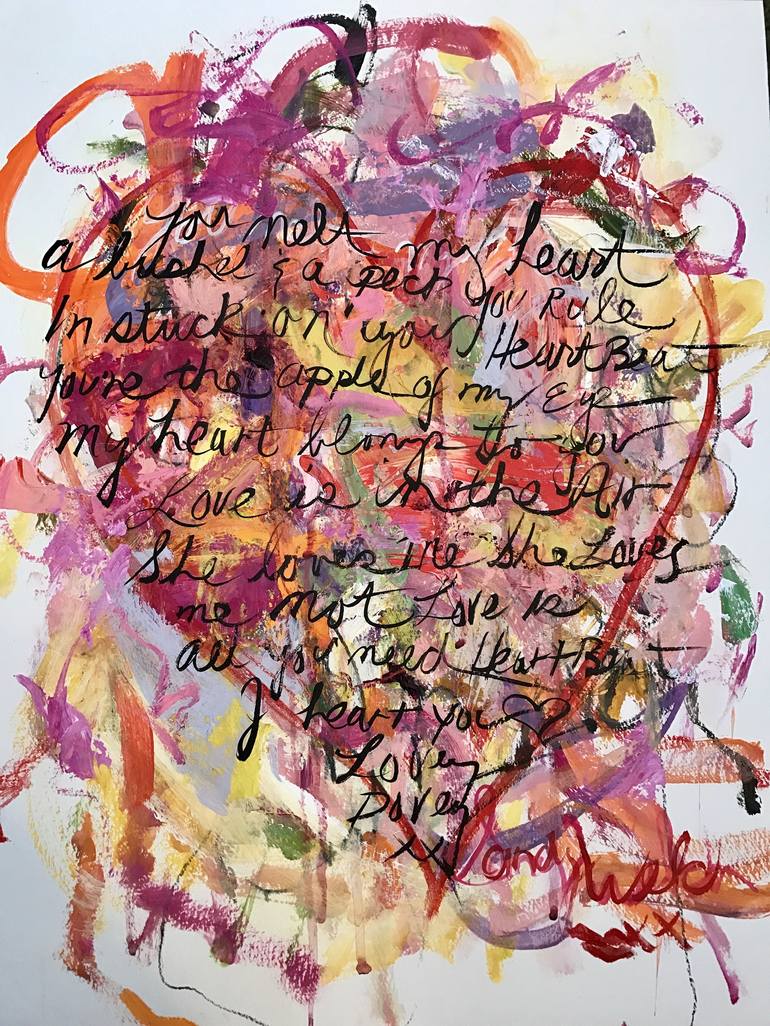 You melt my heart
a bushel & a peck you Rule
In stuck on your HeartBeat
You're the apple of my Eye
My heart belongs to you
Love is in the Air
She loves me She Loves
me not Love is
all you need HeartBeat
I heart you ♡
Lovey
Dovey
xx
xx